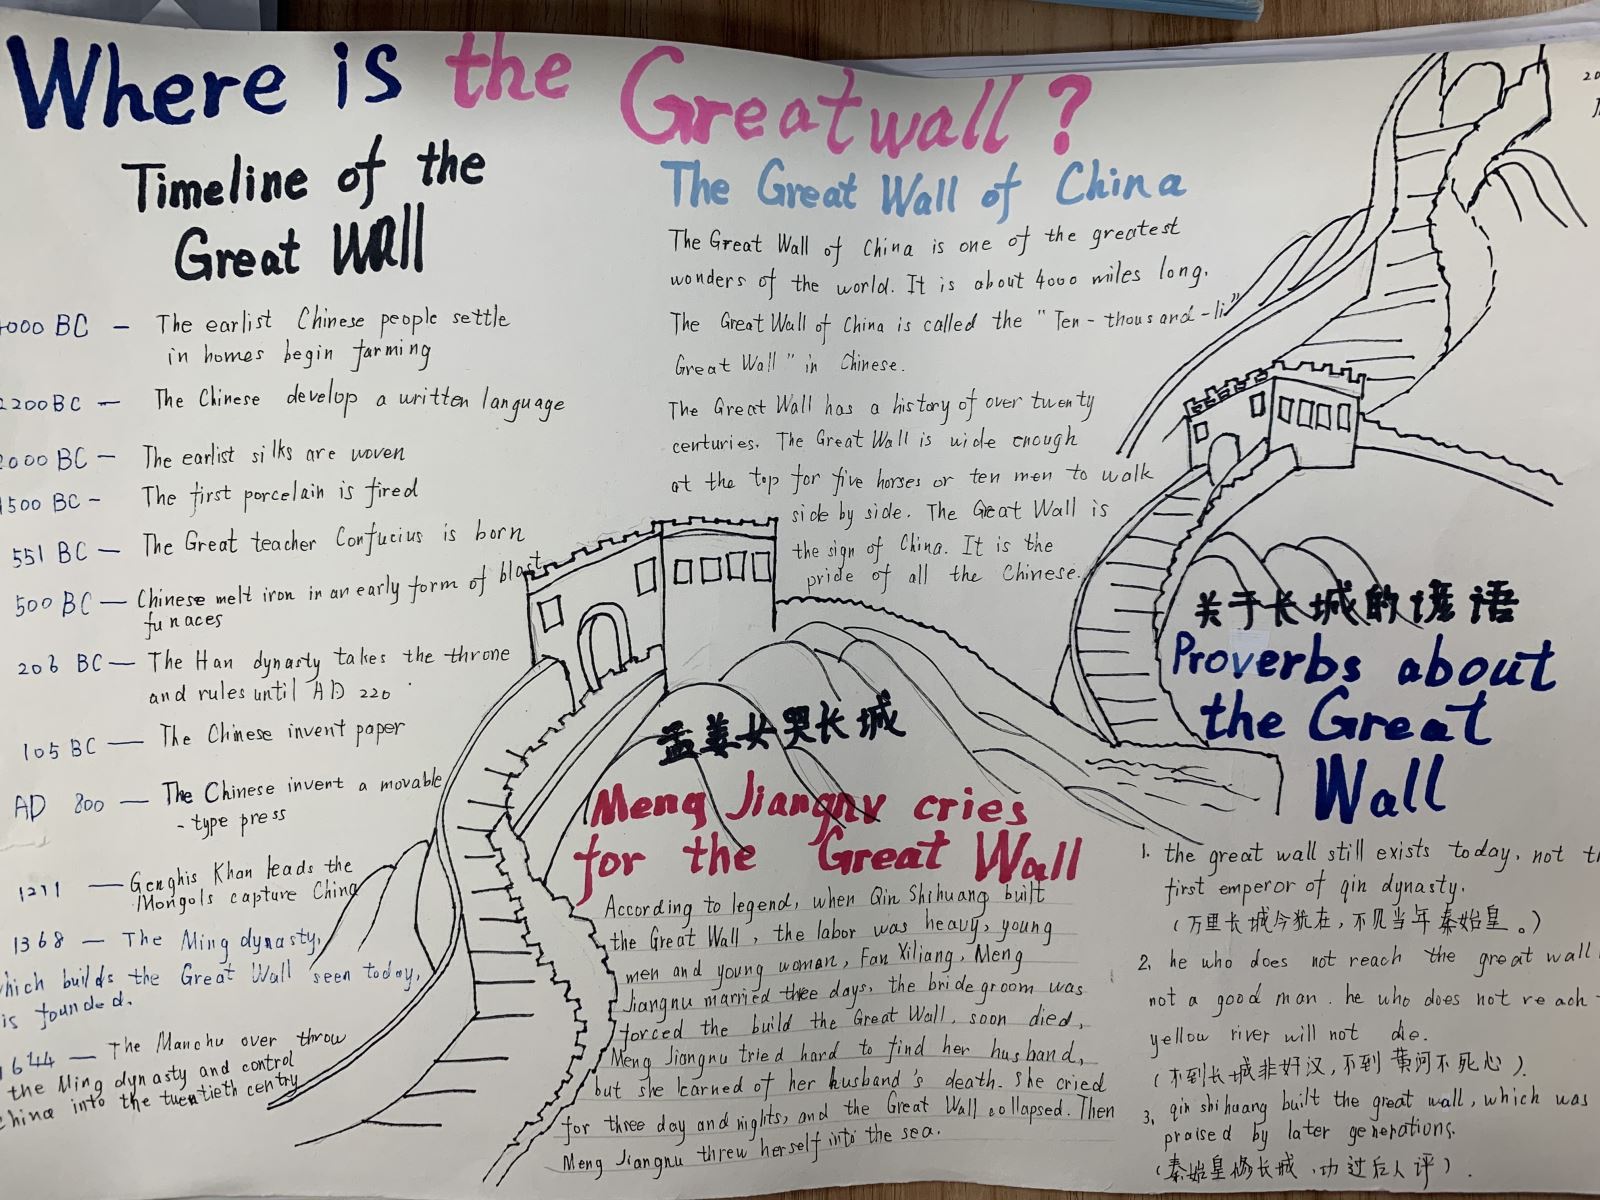 Where is the Greatwall?
Timeline of the
Great Wall
000 BC - The earlist Chinese people settle
in homes begin farming
2200BC - The Chinese develop a written language
2000 BC - The earlist silks are woven
1500 BC - The first porcelain is fired
551 BC - The Great teacher Confucius is born
500 BC - Chinese melt iron in an early form of blast
funaces
206 BC - The Han dynasty takes the throne
and rules until AD 220
105 BC - The Chinese invent paper
AD 800 - The Chinese invent a movable
-type press
1211 - Genghis Khan leads the
Mongols capture China
1368 - The Ming dynasty,
which builds the Great Wall seen today,
is founded.
1644 - The Manchu over throw
the Ming dynasty and control
China into the twentieth centry
The Great Wall of China
The Great Wall of China is one of the greatest
wonders of the world. It is about 4000 miles long.
The Great Wall of China is called the "Ten-thousand-li"
Great Wall" in Chinese.
The Great Wall has a history of over twenty
centuries. The Great Wall is wide enough
at the top for five horses or ten men to walk
side by side. The Great Wall is
the sign of China. It is the
pride of all the Chinese.
孟姜女哭长城
Meng Jiangnv cries
for the Great Wall
According to legend, when Qin Shihuang built
the Great Wall, the labor was heavy, young
men and young woman, Fan Xiliang, Meng
Jiangnu married three days, the bridegroom was
forced the build the Great Wall, soon died,
Meng Jiangnu tried hard to find her husband,
but she learned of her husband's death. She cried
for three day and nights, and the Great Wall collapsed. Then
Meng Jiangnu threw herself into the sea.
关于长城的谚语
Proverbs about
the Great
Wall
1. the great wall still exists today, not th
first emperor of qin dynasty.
(万里长城今犹在，不见当年秦始皇。)
2. he who does not reach the great wall
not a good man. he who does not reach
yellow river will not die.
(不到长城非好汉，不到黄河不死心).
3. qin shi huang built the great wall, which was
praised by later generations.
(秦始皇修长城，功过后人评).
20